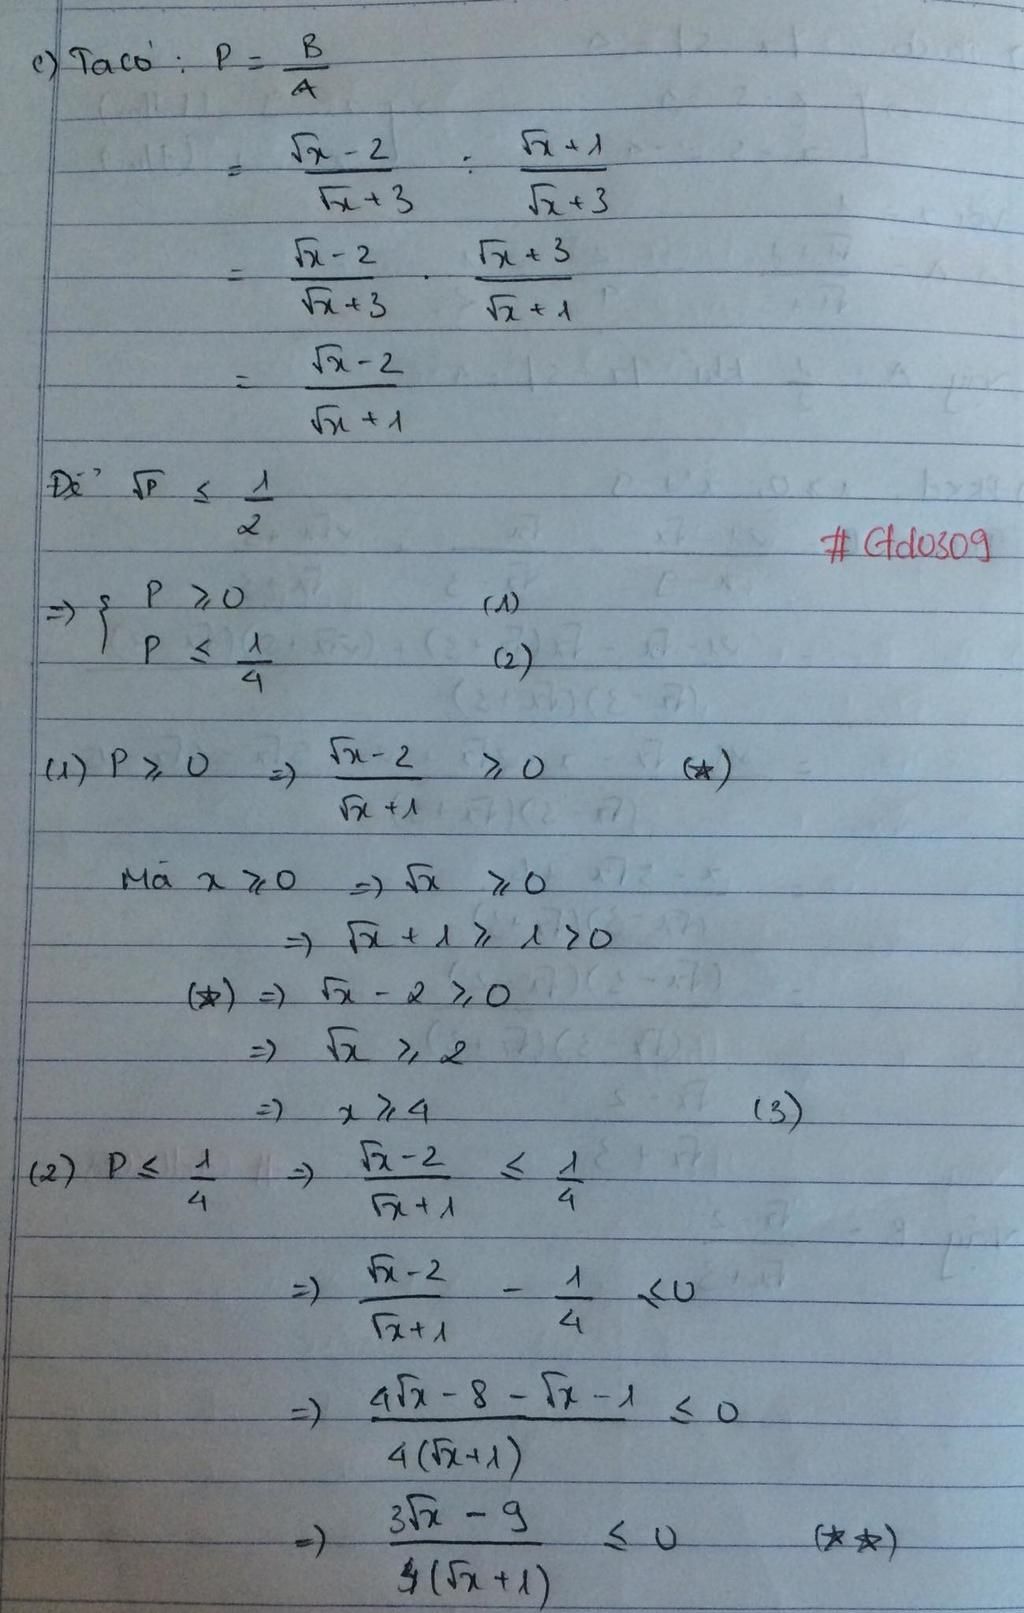 c) Ta có : P = B/A
= (√x - 2)/(√x + 3) : (√x + 1)/(√x + 3)
= (√x - 2)/(√x + 3) . (√x + 3)/(√x + 1)
= (√x - 2)/(√x + 1)
Để √P ≤ 1/2
#Ctd0309
=> { P ≥ 0 (1)
P ≤ 1/4 (2)
(1) P ≥ 0 => (√x - 2)/(√x + 1) ≥ 0 (*)
Mà x ≥ 0 => √x ≥ 0
=> √x + 1 ≥ 1 > 0
(*) => √x - 2 ≥ 0
=> √x ≥ 2
=> x ≥ 4 (3)
(2) P ≤ 1/4 => (√x - 2)/(√x + 1) ≤ 1/4
=> (√x - 2)/(√x + 1) - 1/4 ≤ 0
=> (4√x - 8 - √x - 1)/(4(√x + 1)) ≤ 0
=> (3√x - 9)/(4(√x + 1)) ≤ 0 (**)